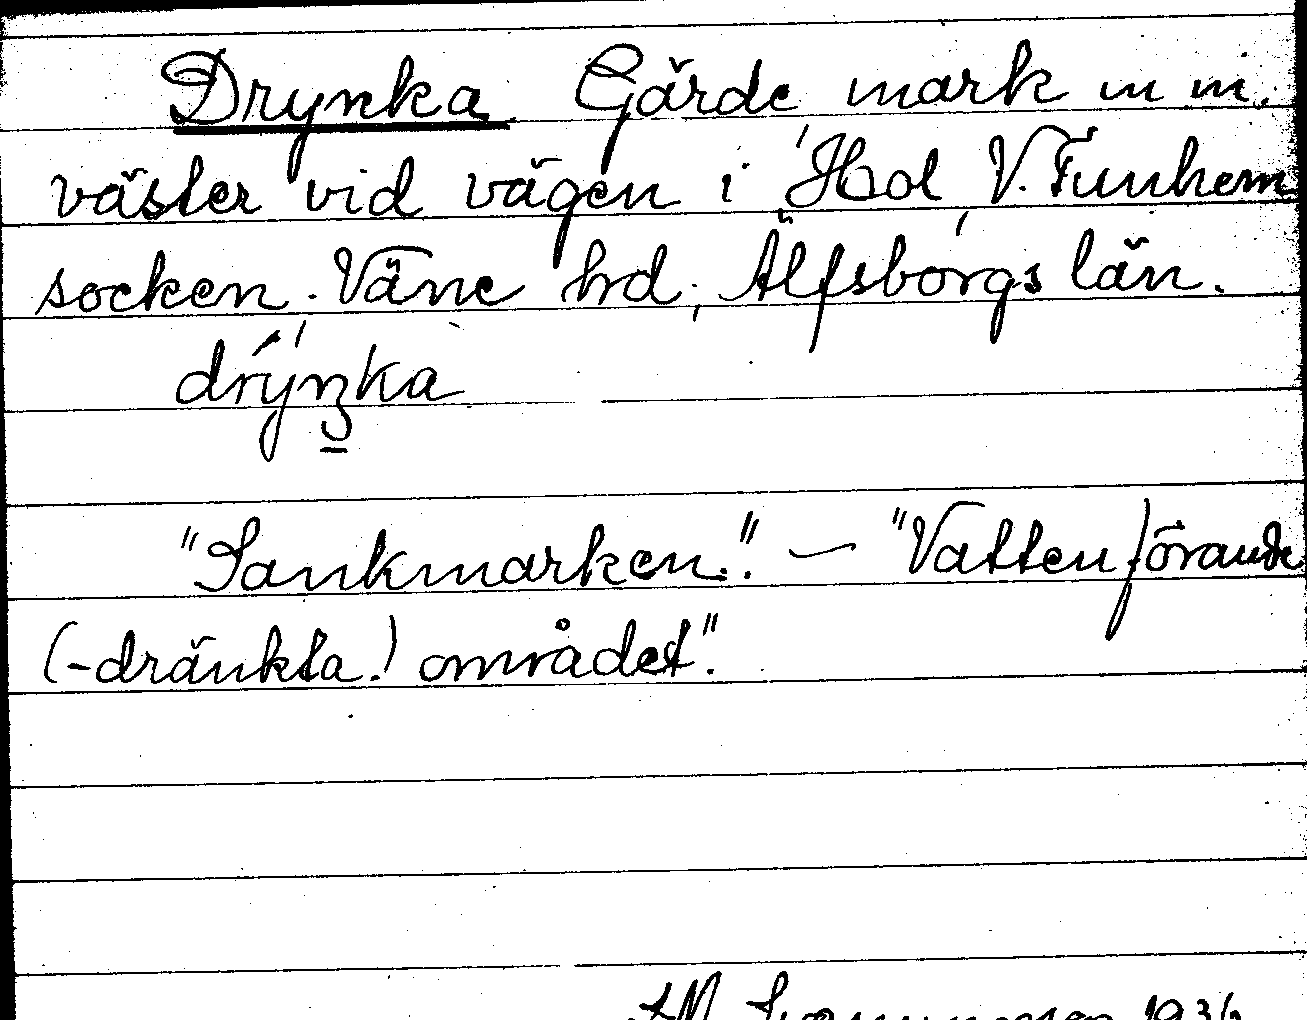 Drynka Gärde mark m m.
väster vid vägen i Hol, V. Tunhem
socken. Väne hrd, Älfsborgs län.
drýŋka
"Sankmarken." — "Vattenförande
(-dränkta!) området".
1936